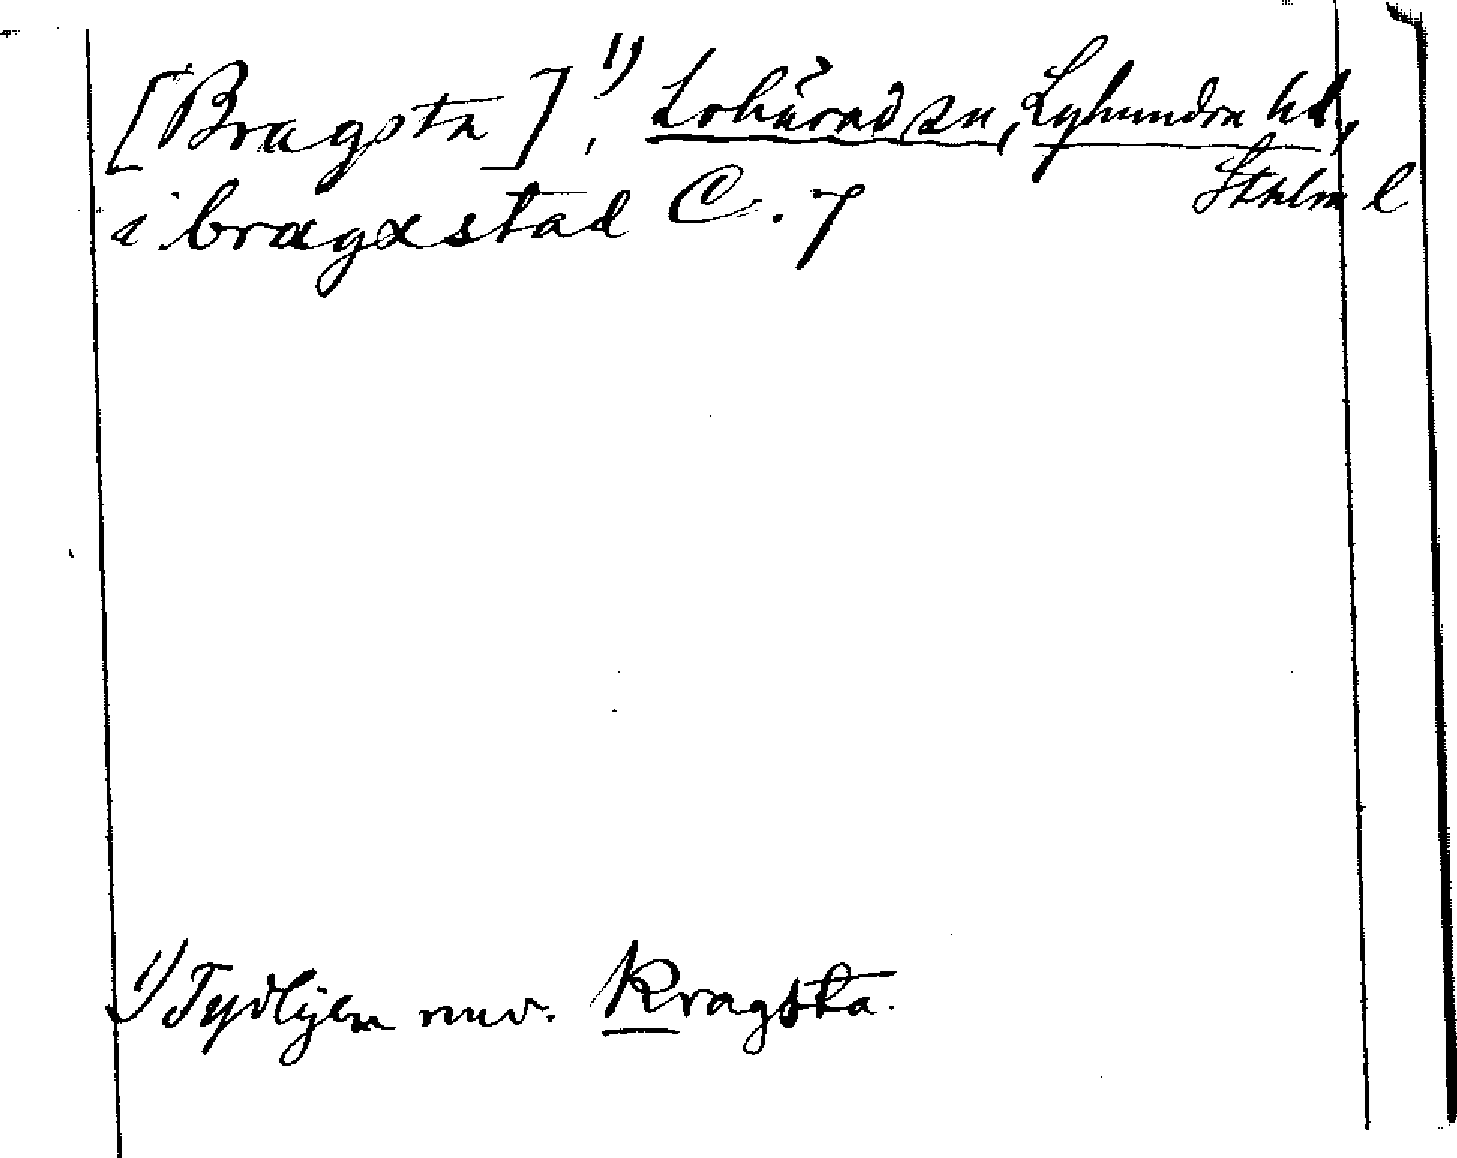 [Bragsta],¹⁾ Lohärad sn, Lyhundra hd,
Sthlm l
i bragxstad C. 7
¹⁾ Tydligen nuv. Kragsta.